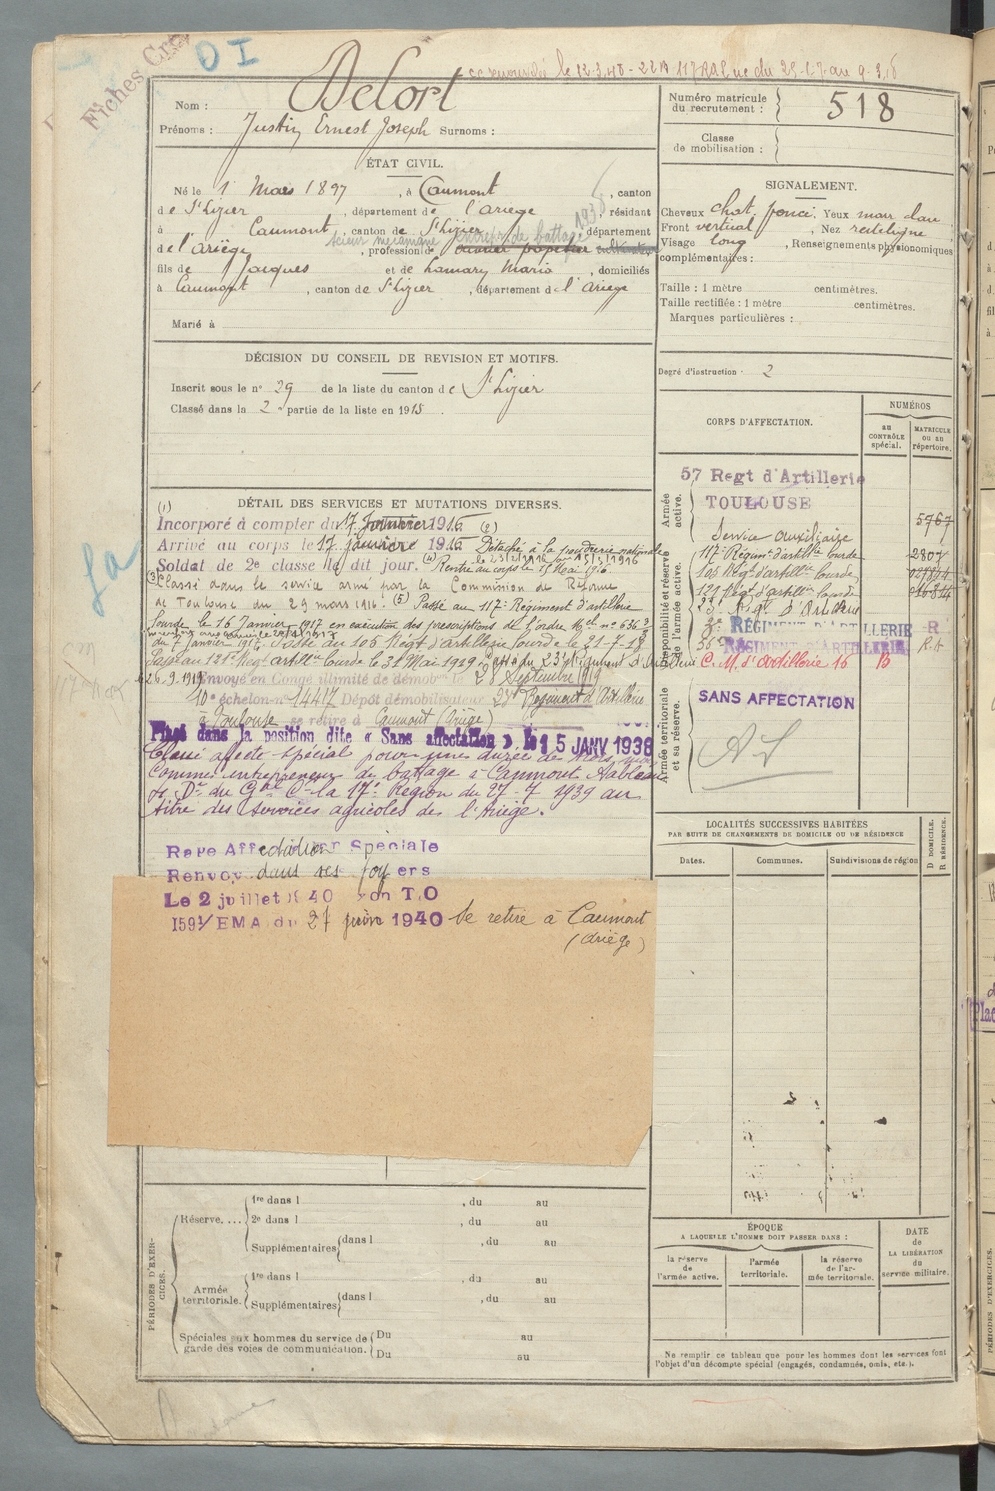 Fiches
O I
Nom : Delort
Prénoms : Justin Ernest Joseph Surnoms :
Numéro matricule du recrutement : 518
Classe de mobilisation :
ÉTAT CIVIL.
Né le 1 Mars 1897, à Caumont, canton
de St Lizier, département de l'Ariège résidant
à Caumont, canton de St Lizier, département
scieur mécanicien entrepr de battage 1936
de l'Ariège, profession de cultivateur
fils de Jacques et de Lamary Maria, domiciliés
à Caumont, canton de St Lizier, département de l'Ariège
Marié à
SIGNALEMENT.
Cheveux chat. foncé. Yeux mar clair
Front vertical, Nez rectiligne
Visage long, Renseignements physionomiques
complémentaires :
Taille : 1 mètre centimètres.
Taille rectifiée : 1 mètre centimètres.
Marques particulières :
Degré d'instruction : 2
DÉCISION DU CONSEIL DE REVISION ET MOTIFS.
Inscrit sous le n° 29 de la liste du canton de St Lizier
Classé dans la 2e partie de la liste en 1915
CORPS D'AFFECTATION.
NUMÉROS
au CONTRÔLE spécial.
MATRICULE ou au répertoire.
Armée active.
57 Regt d'Artillerie
TOULOUSE
5767
Service auxiliaire
Disponibilité et réserve de l'armée active.
117e Régimt d'artillie lourde 2807
105 Régt d'artillie lourde
121 Régt d'artillie lourde
RÉGIMENT D'ARTILLERIE R
RÉGIMENT D'ARTILLERIE R.A
C. M. d'Artillerie 16
Armée territoriale et sa réserve.
SANS AFFECTATION
DÉTAIL DES SERVICES ET MUTATIONS DIVERSES.
(1) Incorporé à compter du 17 Janvier 1916 (2)
Arrivé au corps le 17 Janvier 1916 Détaché à la poudrerie nationale
Soldat de 2e classe le dit jour. Rentré au corps le 15 Mai 1916
(3) Classé dans le service armé par la Commission de Réforme
de Toulouse du 29 mars 1916. (5) Passé au 117e Régiment d'artillerie
lourde le 16 Janvier 1917 en exécution des prescriptions de l'ordre
du 7 Janvier 1917. Passé au 105 Régt d'artillerie lourde le 21-7-18
Passé au 121e Régt artillie lourde le 31 Mai 1919. Passé au 23e Régiment d'Artillerie
26-9-1919 Envoyé en Congé illimité de démob le 28 Septembre 1919
10e échelon n° 14417 Dépôt démobilisateur 23e Régiment d'Artillerie
à Toulouse se retire à Caumont (Ariège)
Placé dans la position dite « Sans affectation » le 15 JANV 1938
Classé affecté spécial pour une durée de trois mois
comme entrepreneur de battage à Caumont. Tableau
du Gal Ct la 17e Région du 27-7 1939 au
titre des services agricoles de l'Ariège.
Raye Affectation Spéciale
Renvoyé dans ses foyers
Le 2 juillet 1940 T.O
1591/EMA du 27 juin 1940 se retire à Caumont
(Ariège)
LOCALITÉS SUCCESSIVES HABITÉES
PAR SUITE DE CHANGEMENTS DE DOMICILE OU DE RÉSIDENCE
Dates.
Communes.
Subdivisions de région
D DOMICILE.
R RÉSIDENCE.
PÉRIODES D'EXERCICES.
Réserve....
1re dans l , du au
2e dans l , du au
Supplémentaires dans l , du au
Armée territoriale.
1re dans l , du au
Supplémentaires dans l , du au
Spéciales aux hommes du service de garde des voies de communication.
Du au
Du au
ÉPOQUE
A LAQUELLE L'HOMME DOIT PASSER DANS :
la réserve de l'armée active.
l'armée territoriale.
la réserve de l'armée territoriale.
DATE de LA LIBÉRATION du service militaire.
Ne remplir ce tableau que pour les hommes dont les services font
l'objet d'un décompte spécial (engagés, condamnés, omis, etc.).